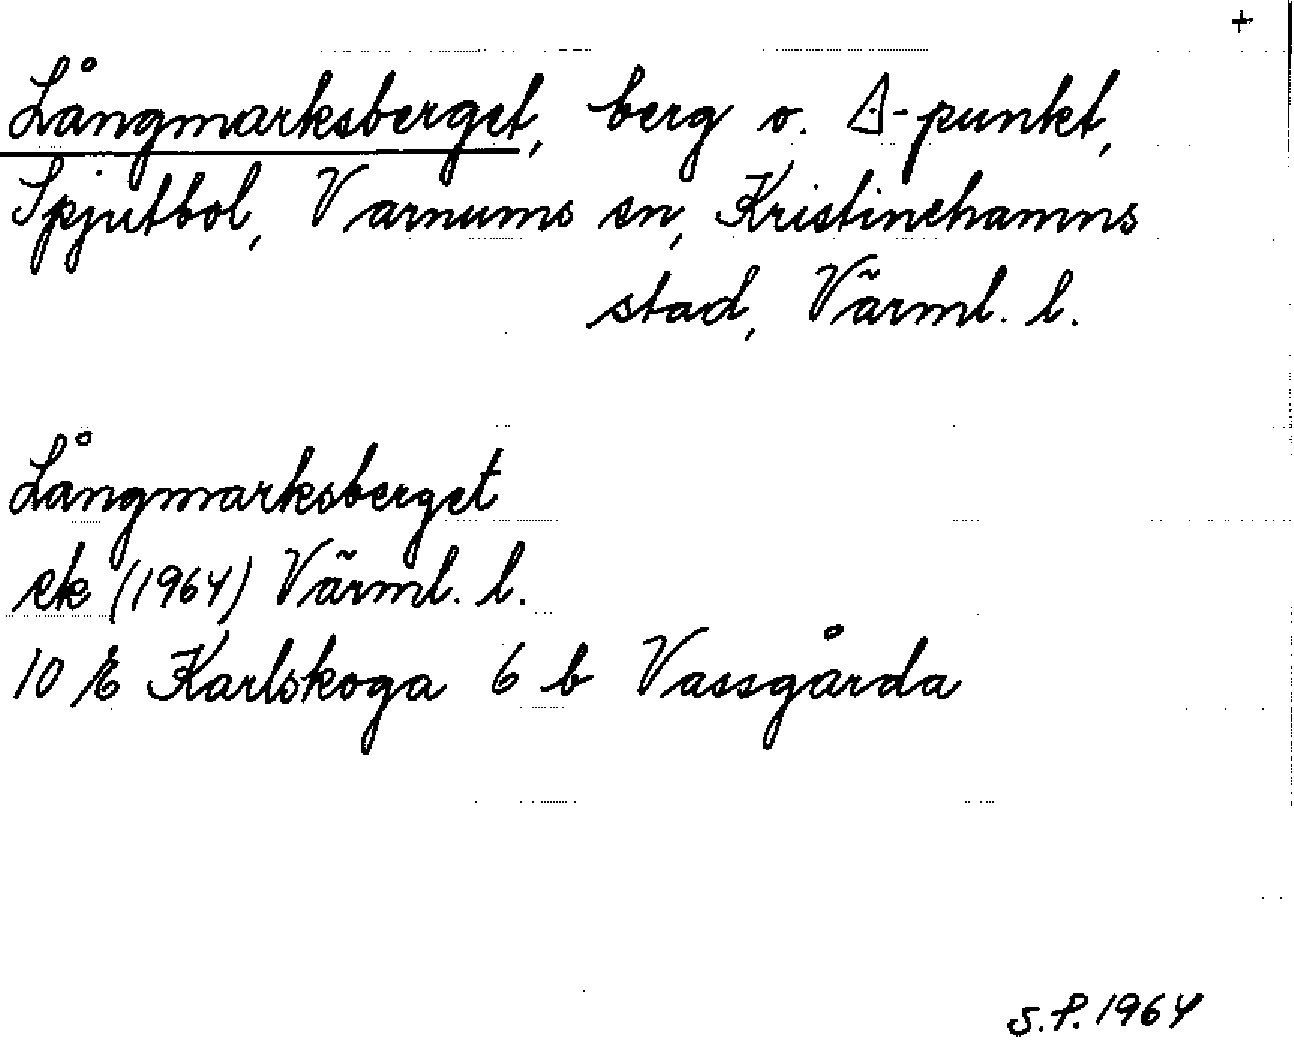 +
Långmarksberget, berg o. ∆-punkt,
Spjutbol, Varnums sn, Kristinehamns
stad, Värml. l.
Långmarksberget
ek (1964) Värml. l.
10 E Karlskoga 6 b Vassgårda
S.F. 1964